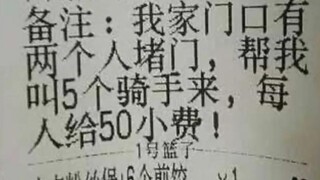 备注：我家门口有
两个人堵门，帮我
叫5个骑手来，每
人给50小费！
1号篮子